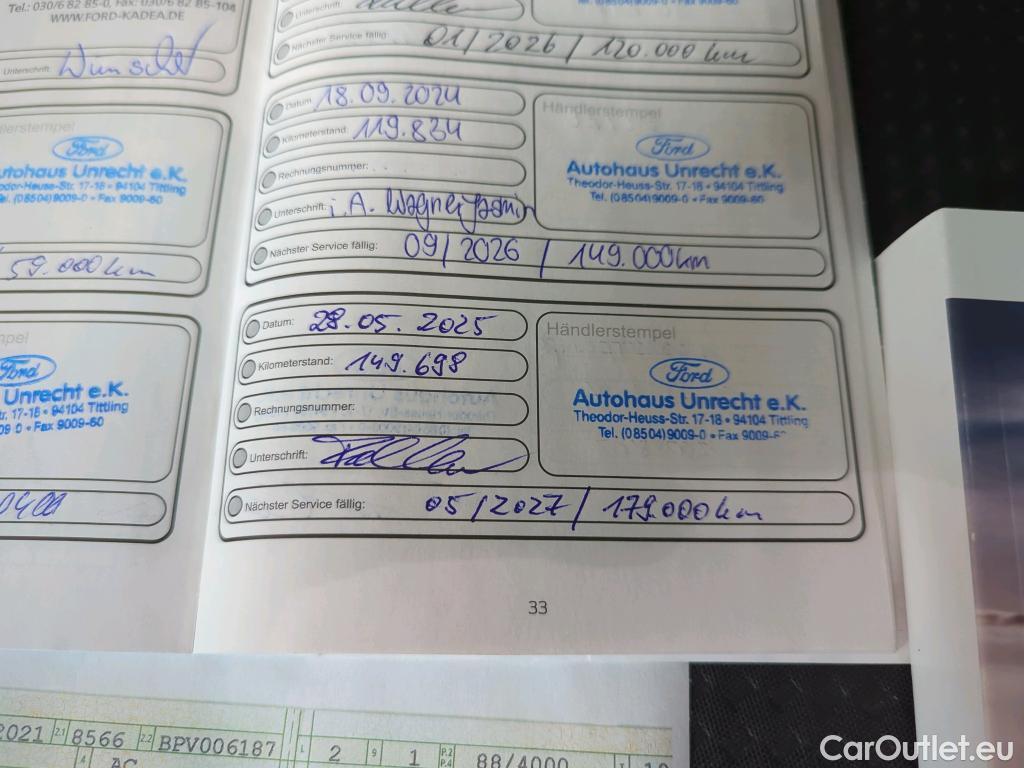 Tel.: 030/6 82 85-0, Fax: 030/6 82 85-104
WWW.FORD-KADEA.DE
Unterschrift: Wunschel
Händlerstempel
Ford
Autohaus Unrecht e.K.
Theodor-Heuss-Str. 17-18 • 94104 Tittling
Tel. (08504)9009-0 • Fax 9009-60
59.000 km
Ford
Unrecht e.K.
17-18 • 94104 Tittling
• Fax 9009-60
Unterschrift:
Nächster Service fällig: 01/2026 / 120.000 km
Datum: 18.09.2024
Kilometerstand: 119.834
Rechnungsnummer:
Unterschrift: i.A. Wagner
Nächster Service fällig: 09/2026 / 149.000 km
Händlerstempel
Ford
Autohaus Unrecht e.K.
Theodor-Heuss-Str. 17-18 • 94104 Tittling
Tel. (08504)9009-0 • Fax 9009-60
Datum: 28.05.2025
Kilometerstand: 149.698
Rechnungsnummer:
Unterschrift:
Nächster Service fällig: 05/2027 / 179.000 km
Händlerstempel
Ford
Autohaus Unrecht e.K.
Theodor-Heuss-Str. 17-18 • 94104 Tittling
Tel. (08504)9009-0 • Fax 9009-6
33
2021 2.1 8566 2.2 BPV006187 L 2 9 1 P.2 P.4 88/4000 T
4 AC
CarOutlet.eu